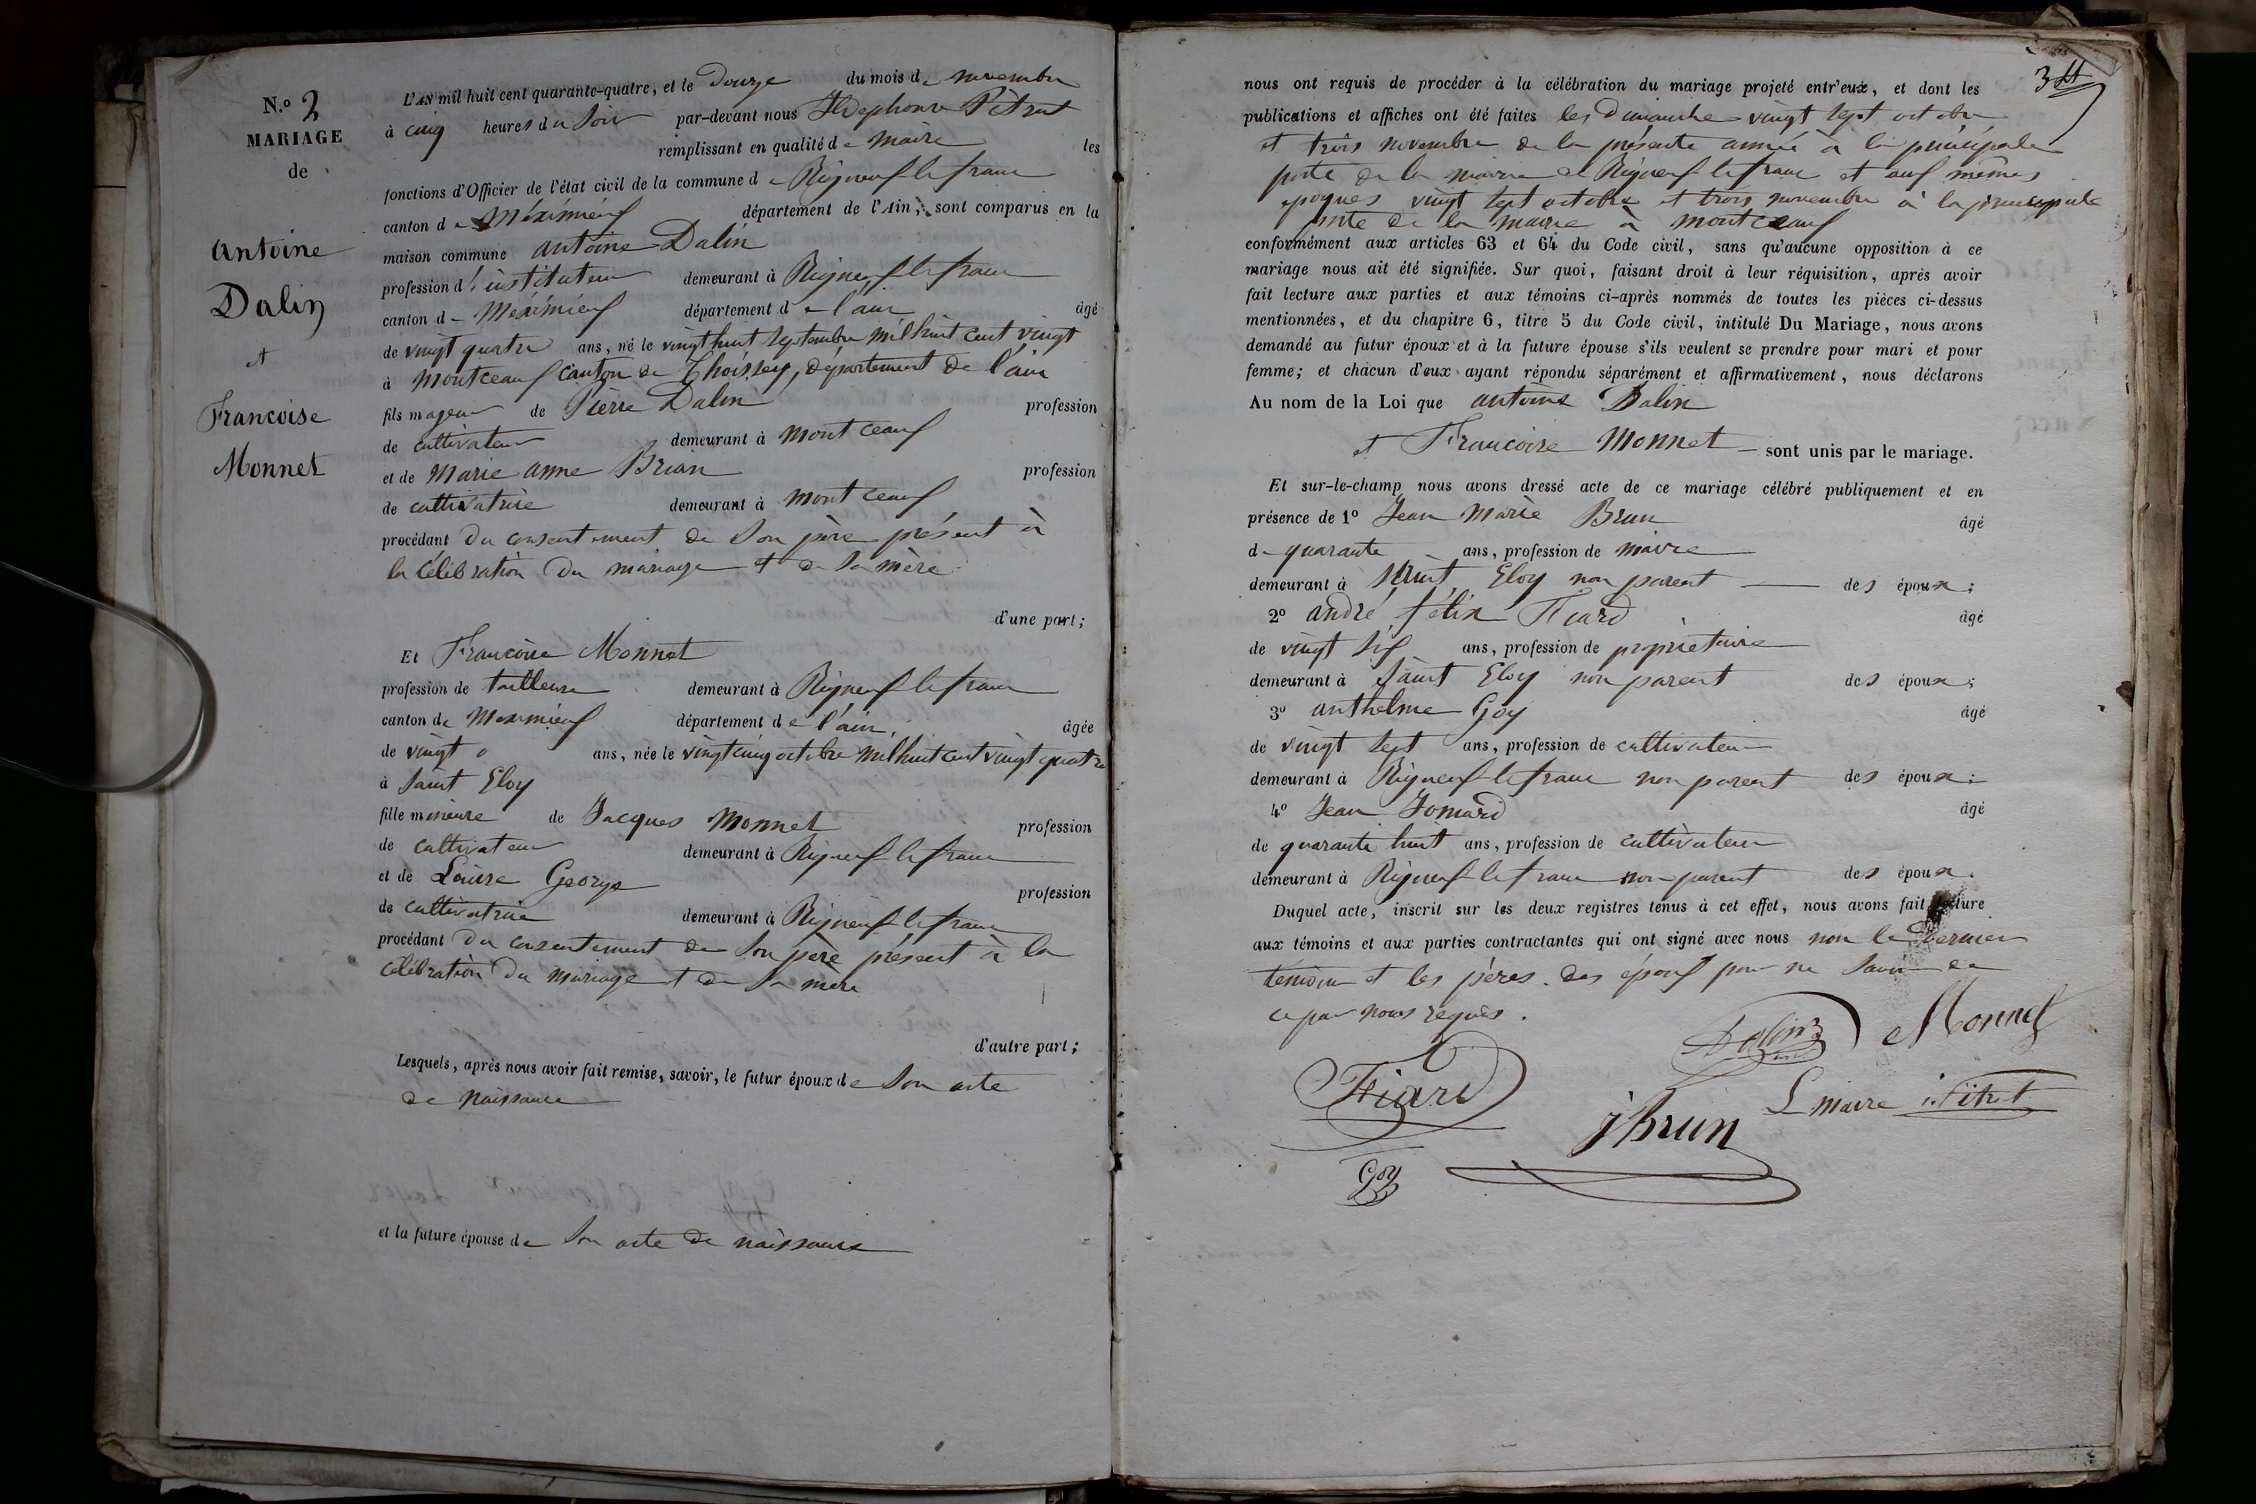 N.º 3
MARIAGE
de
Antoine
Dalin
et
Francoise
Monnet
L'AN mil huit cent quarante-quatre, et le Douze du mois de novembre
à cinq heures du Soir par-devant nous Ildephonse Pétrut
remplissant en qualité de maire les
fonctions d'Officier de l'état civil de la commune de Rigneux le franc
canton de Méximieux département de l'Ain, sont comparus en la
maison commune antoine Dalin
profession d'instituteur demeurant à Rigneux le franc
canton de Méximieux département de l'ain âgé
de vingt quatre ans, né le vingt huit Septembre mil huit cent vingt
à Montceaux Canton de Thoissey, département de l'ain
fils majeur de Pierre Dalin profession
de cultivateur demeurant à Montceaux
et de Marie anne Brian profession
de cultivatrice demeurant à montceaux
procédant du consentement de Son père présent à
la célébration du mariage et de Sa mère
d'une part;
Et Francoise Monnet
profession de tailleuse demeurant à Rigneux le franc
canton de Meximieux département de l'ain, âgée
de vingt ans, née le vingt cinq octobre mil huit cent vingt quatre
à Saint Eloy
fille mineure de Jacques Monnet profession
de cultivateur demeurant à Rigneux le franc
et de Louise George profession
de cultivatrice demeurant à Rigneux le franc
procédant du consentement de Son père présent à la
célébration du mariage et de Sa mère
d'autre part;
Lesquels, après nous avoir fait remise, savoir, le futur époux de Son acte
de naissance
et la future épouse de Son acte de naissance
3
nous ont requis de procéder à la célébration du mariage projeté entr'eux, et dont les
publications et affiches ont été faites les Dimanches vingt sept octobre
et trois novembre de la présente année à la principale
porte de la mairie de Rigneux le franc et aux mêmes
époques vingt sept octobre et trois novembre à la principale
porte de la mairie à montceaux
conformément aux articles 63 et 64 du Code civil, sans qu'aucune opposition à ce
mariage nous ait été signifiée. Sur quoi, faisant droit à leur réquisition, après avoir
fait lecture aux parties et aux témoins ci-après nommés de toutes les pièces ci-dessus
mentionnées, et du chapitre 6, titre 5 du Code civil, intitulé Du Mariage, nous avons
demandé au futur époux et à la future épouse s'ils veulent se prendre pour mari et pour
femme; et chacun d'eux ayant répondu séparément et affirmativement, nous déclarons
Au nom de la Loi que antoine Dalin
et Francoise Monnet sont unis par le mariage.
Et sur-le-champ nous avons dressé acte de ce mariage célébré publiquement et en
présence de 1º Jean Marie Brun âgé
de quarante ans, profession de maire
demeurant à Saint Eloy non parent des époux;
2º andré félix Fiard âgé
de vingt Six ans, profession de propriétaire
demeurant à Saint Eloy non parent des époux;
3º anthelme Goy âgé
de vingt Sept ans, profession de cultivateur
demeurant à Rigneux le franc non parent des époux;
4º Jean Jomard âgé
de quarante huit ans, profession de cultivateur
demeurant à Rigneux le franc non parent des époux.
Duquel acte, inscrit sur les deux registres tenus à cet effet, nous avons fait lecture
aux témoins et aux parties contractantes qui ont signé avec nous non le Dernier
témoin et les pères des époux pour ne Savoir de
ce par nous requis.
Dalin Monnet
Fiard
L maire
jBrun
Goy